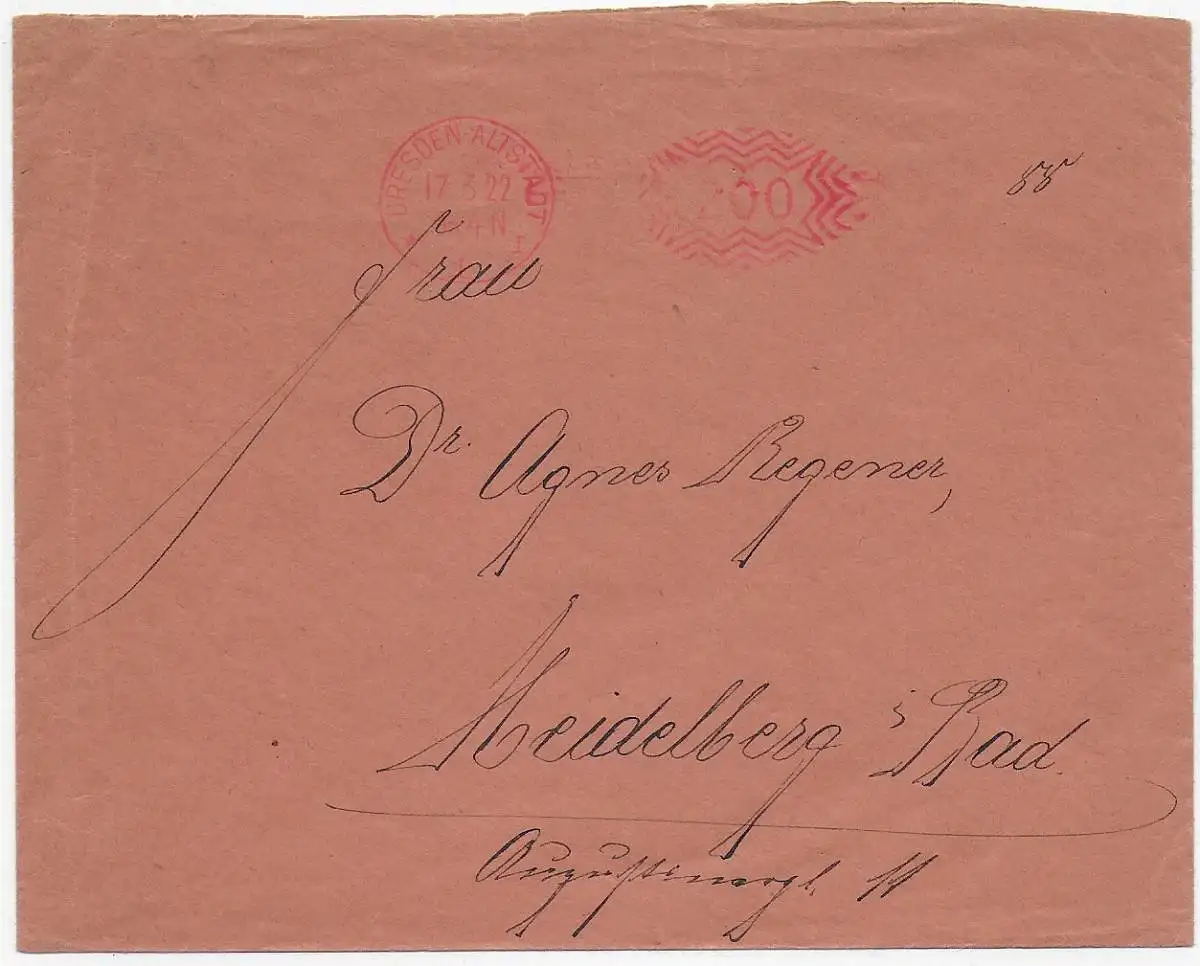 DRESDEN-ALTSTADT
17.3.22
4-N
200
Frau
Dr. Agnes Regener,
Heidelberg i. Bad.
11